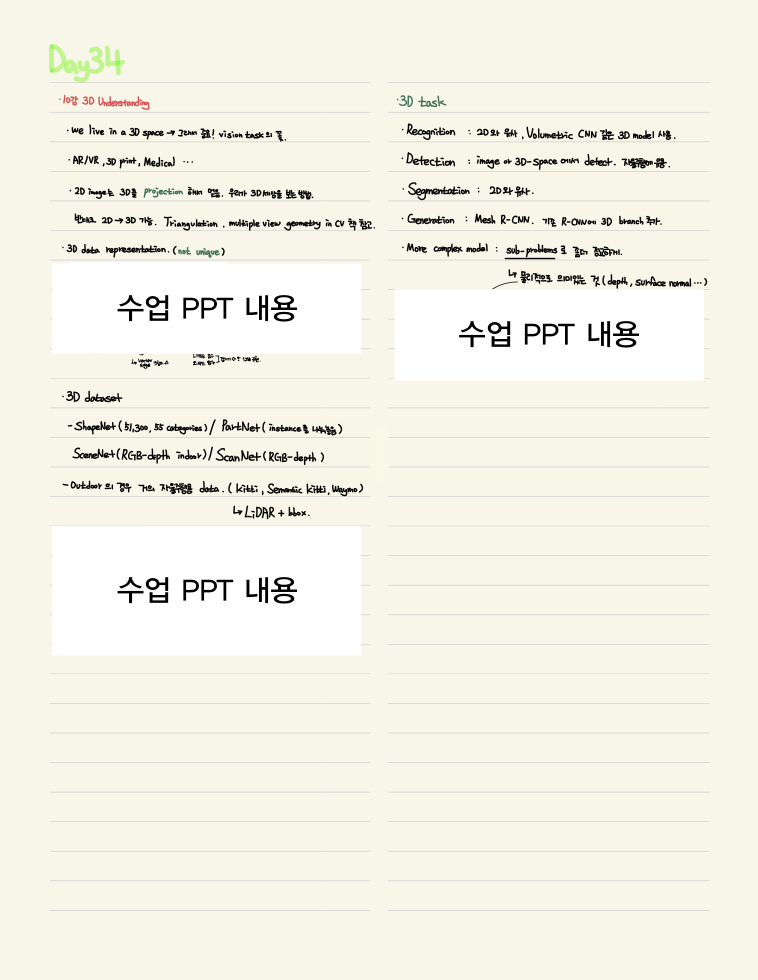 Day34
·10강 3D Understanding
·we live in a 3D space → 그래서 중요! vision task의 꽃.
·AR/VR, 3D print, Medical ···
·2D image는 3D를 projection 해서 얻음. 우리가 3D세상을 보는 방법.
반대로 2D→3D 가능. Triangulation, multiple view geometry in CV 책 참고.
·3D data representation. (not unique)
수업 PPT 내용
·3D dataset
-ShapeNet (51,300, 55 categories) / PartNet (instance를 나눠놓음)
SceneNet (RGB-depth indoor) / ScanNet (RGB-depth)
-Outdoor의 경우 거의 자율주행용 data. (kitti, Semantic kitti, Waymo)
↳ LiDAR + bbox.
수업 PPT 내용
·3D task
·Recognition : 2D와 유사, Volumetric CNN 같은 3D model 사용.
·Detection : image or 3D-space에서 detect. 자율주행에 유용.
·Segmentation : 2D와 유사.
·Generation : Mesh R-CNN. 기존 R-CNN에 3D branch 추가.
·More complex model : sub-problems로 좀더 정교하게.
↳ 물리적으로 의미있는 것 (depth, surface normal ···)
수업 PPT 내용